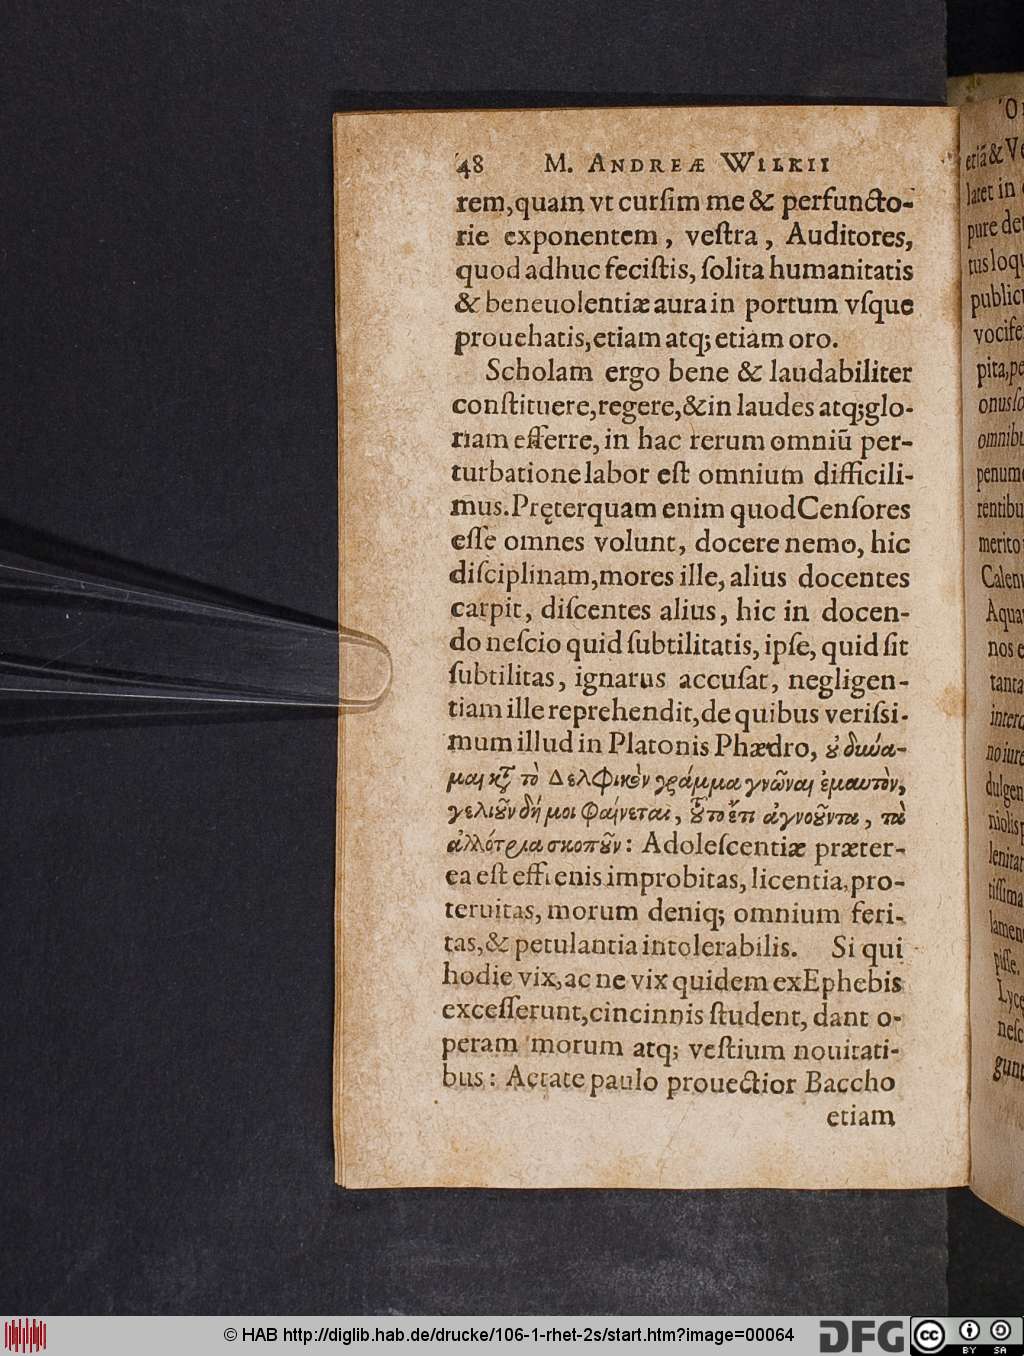 48 M. ANDREÆ WILKII
rem,quam vt curſim me & perfuncto-
rie exponentem, veſtra, Auditores,
quod adhuc feciſtis, ſolita humanitatis
& beneuolentiæ aura in portum vſque
prouehatis,etiam atq; etiam oro.
Scholam ergo bene & laudabiliter
conſtituere,regere,&in laudes atq;glo-
riam efferre, in hac rerum omniū per-
turbatione labor eſt omnium difficili-
mus.Pręterquam enim quod Cenſores
eſſe omnes volunt, docere nemo, hic
diſciplinam,mores ille, alius docentes
carpit, diſcentes alius, hic in docen-
do neſcio quid ſubtilitatis, ipſe, quid ſit
ſubtilitas, ignarus accuſat, negligen-
tiam ille reprehendit,de quibus veriſsi-
mum illud in Platonis Phædro, οὐ δυνά-
μαι κτ τὸ Δελφικὸν γράμμα γνῶναι ἐμαυτὸν,
γελοῖον δή μοι φαίνεται, τοῦτο ἔτι ἀγνοοῦντα, τὰ
ἀλλότρια σκοπεῖν: Adoleſcentiæ præter-
ea eſt effrenis improbitas, licentia, pro-
teruitas, morum deniq; omnium feri-
tas,& petulantia intolerabilis. Si qui
hodie vix,ac ne vix quidem ex Ephebis
exceſſerunt,cincinnis ſtudent, dant o-
peram morum atq; veſtium nouitati-
bus: Aetate paulo prouectior Baccho
etiam
etiā & Ve
latet in
pure de
tus loqu
publicu
vocife
pita, pe
onus ſo
omnibu
penum
rentibu
merito
Calen
Aqua
nos e
tanta
interd
no iure
dulgen
niolis p
lenitat
tiſſima
lamen
piſſe.
Lyce
neſc
gunt
© HAB http://diglib.hab.de/drucke/106-1-rhet-2s/start.htm?image=00064
DFG
cc BY SA